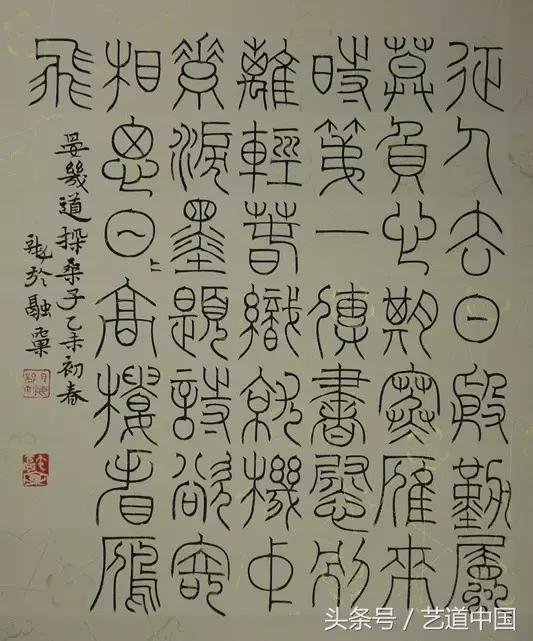 征人去日殷勤屬
莫負心期寒雁來
時第一傳書慰別
離輕春織就機中
素淚墨題詩欲寄
相思日〻高樓看鴈
飛
晏幾道採桑子乙未初春
於融
头条号／艺道中国